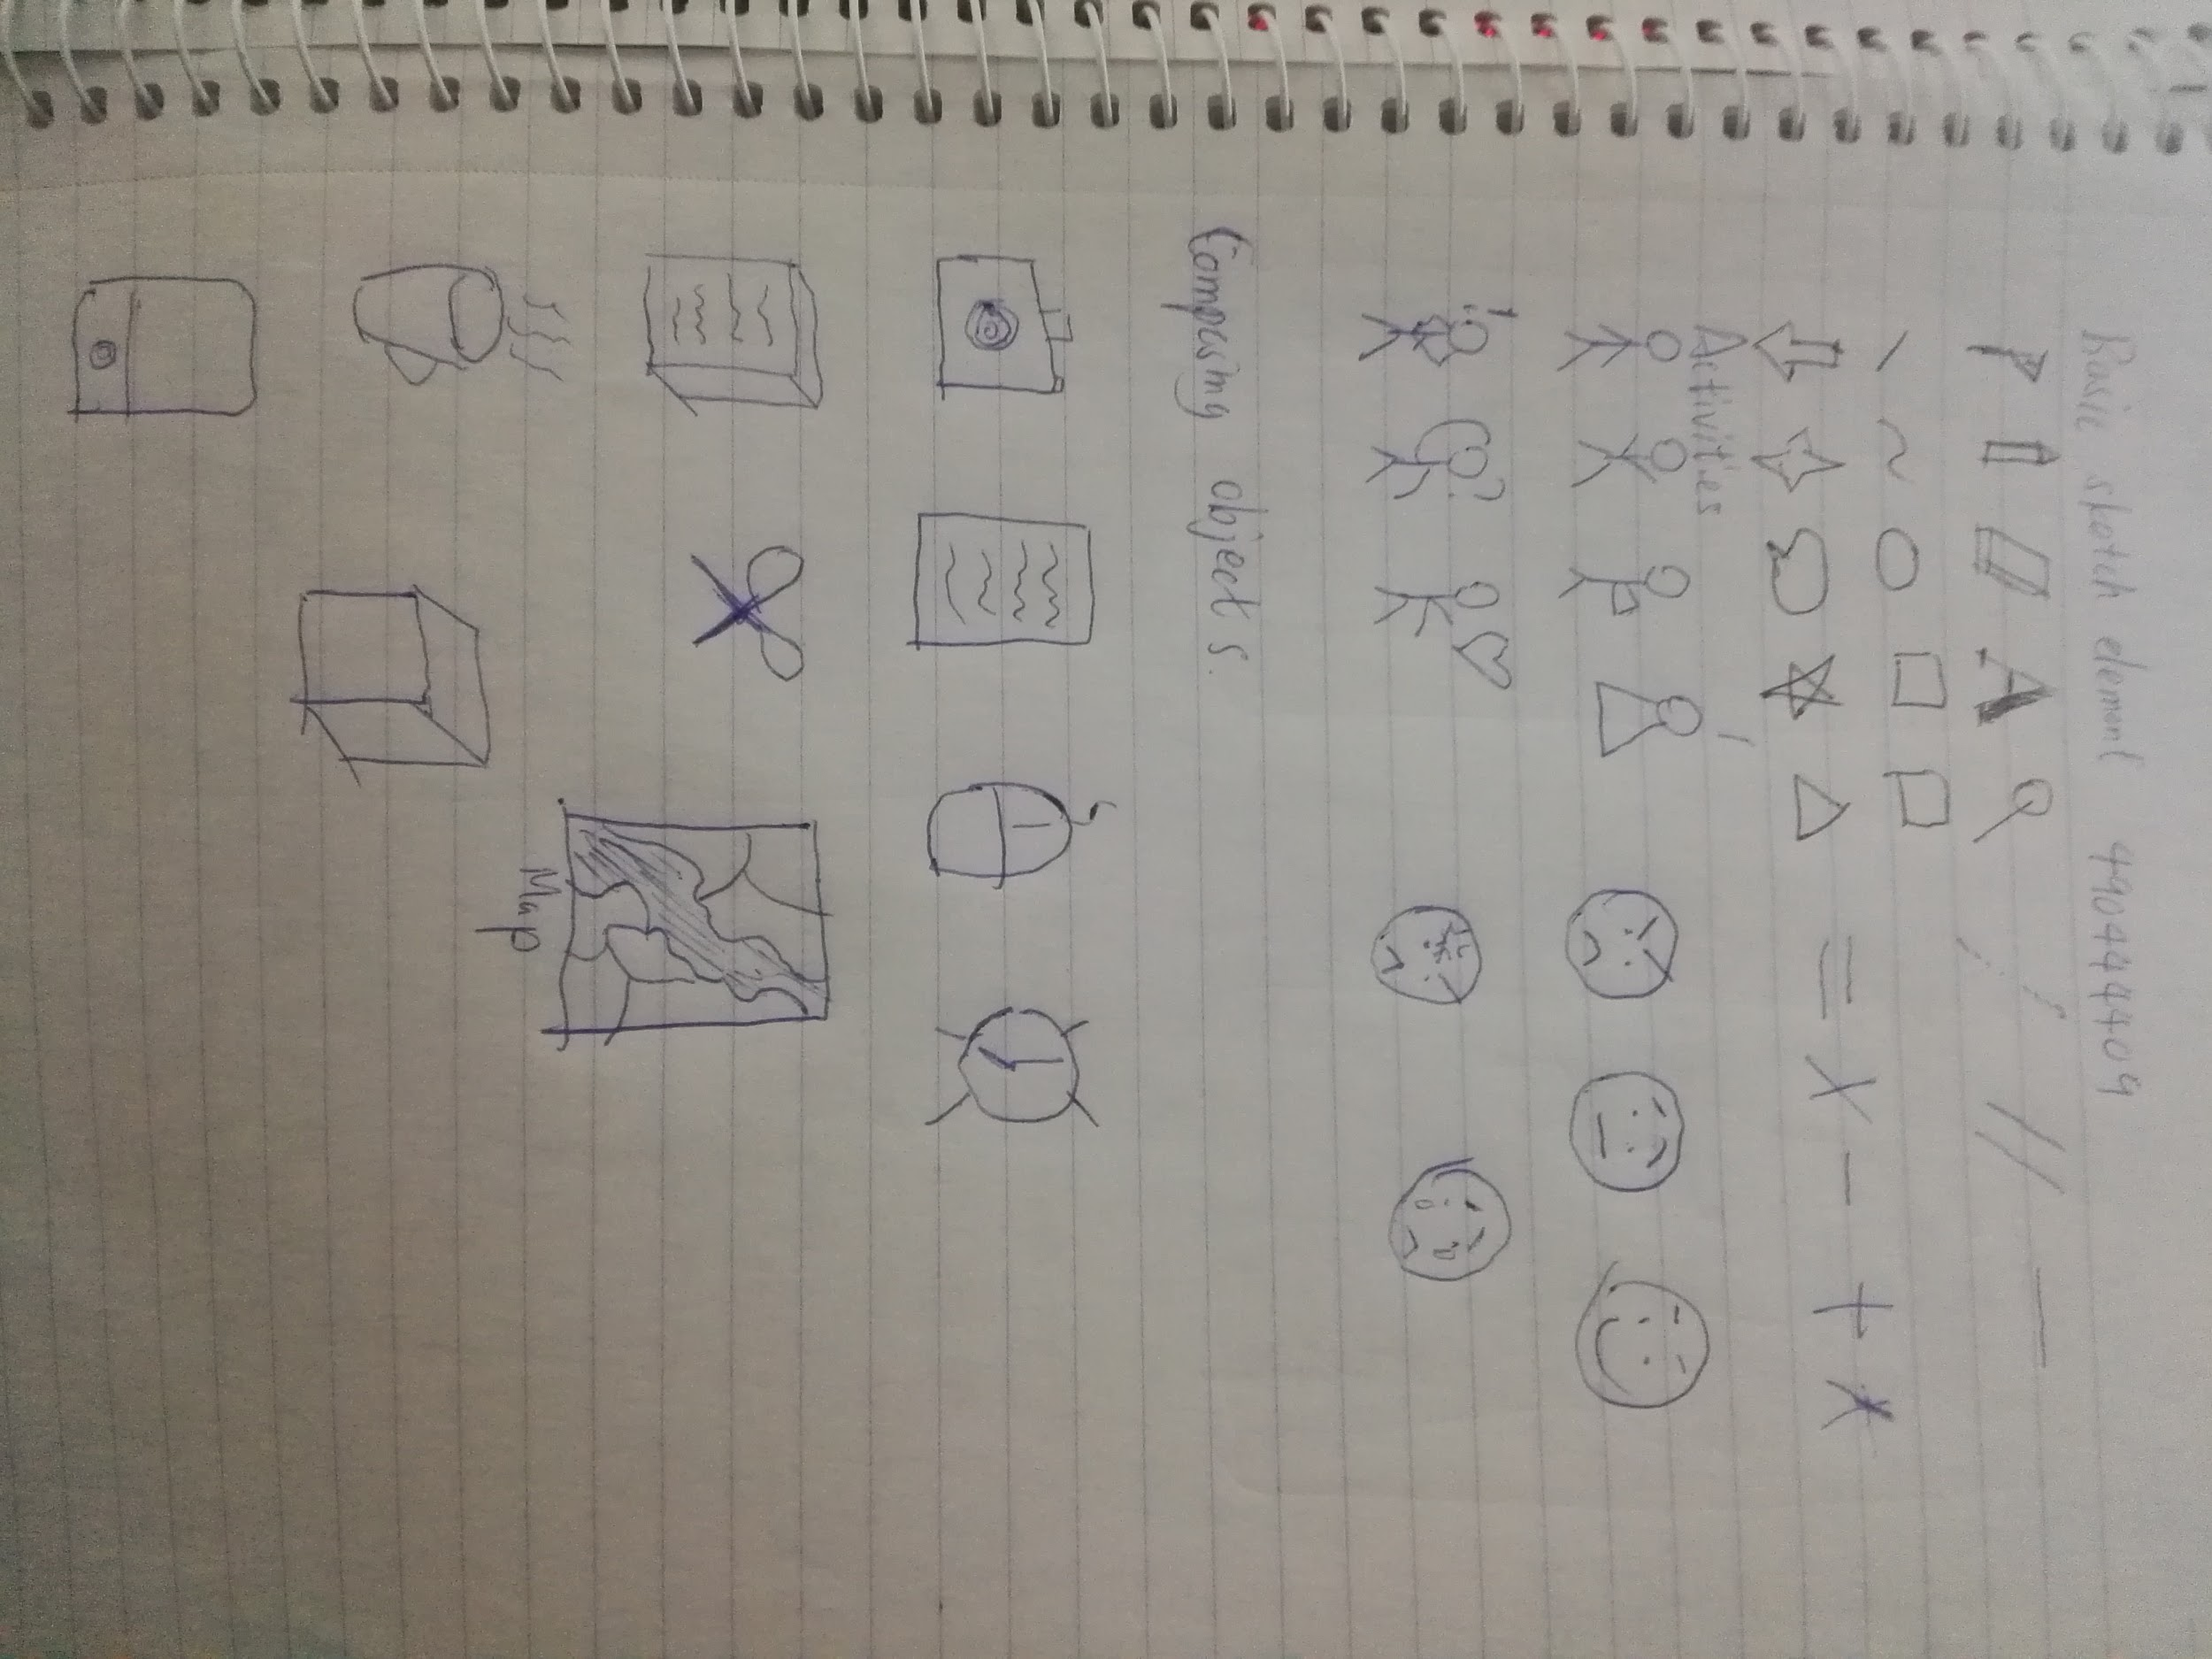 Basic sketch element 490444409
Activities
Composing objects.
Map